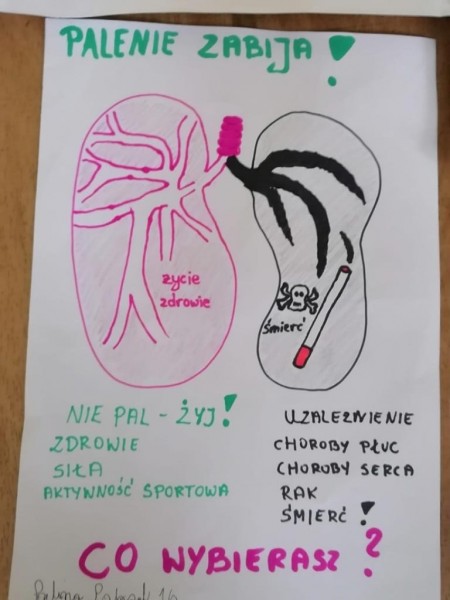 PALENIE ZABIJA !
życie
zdrowie
śmierć
NIE PAL - ŻYJ!
ZDROWIE
SIŁA
AKTYWNOŚĆ SPORTOWA
UZALEŻNIENIE
CHOROBY PŁUC
CHOROBY SERCA
RAK
ŚMIERĆ !
CO WYBIERASZ ?